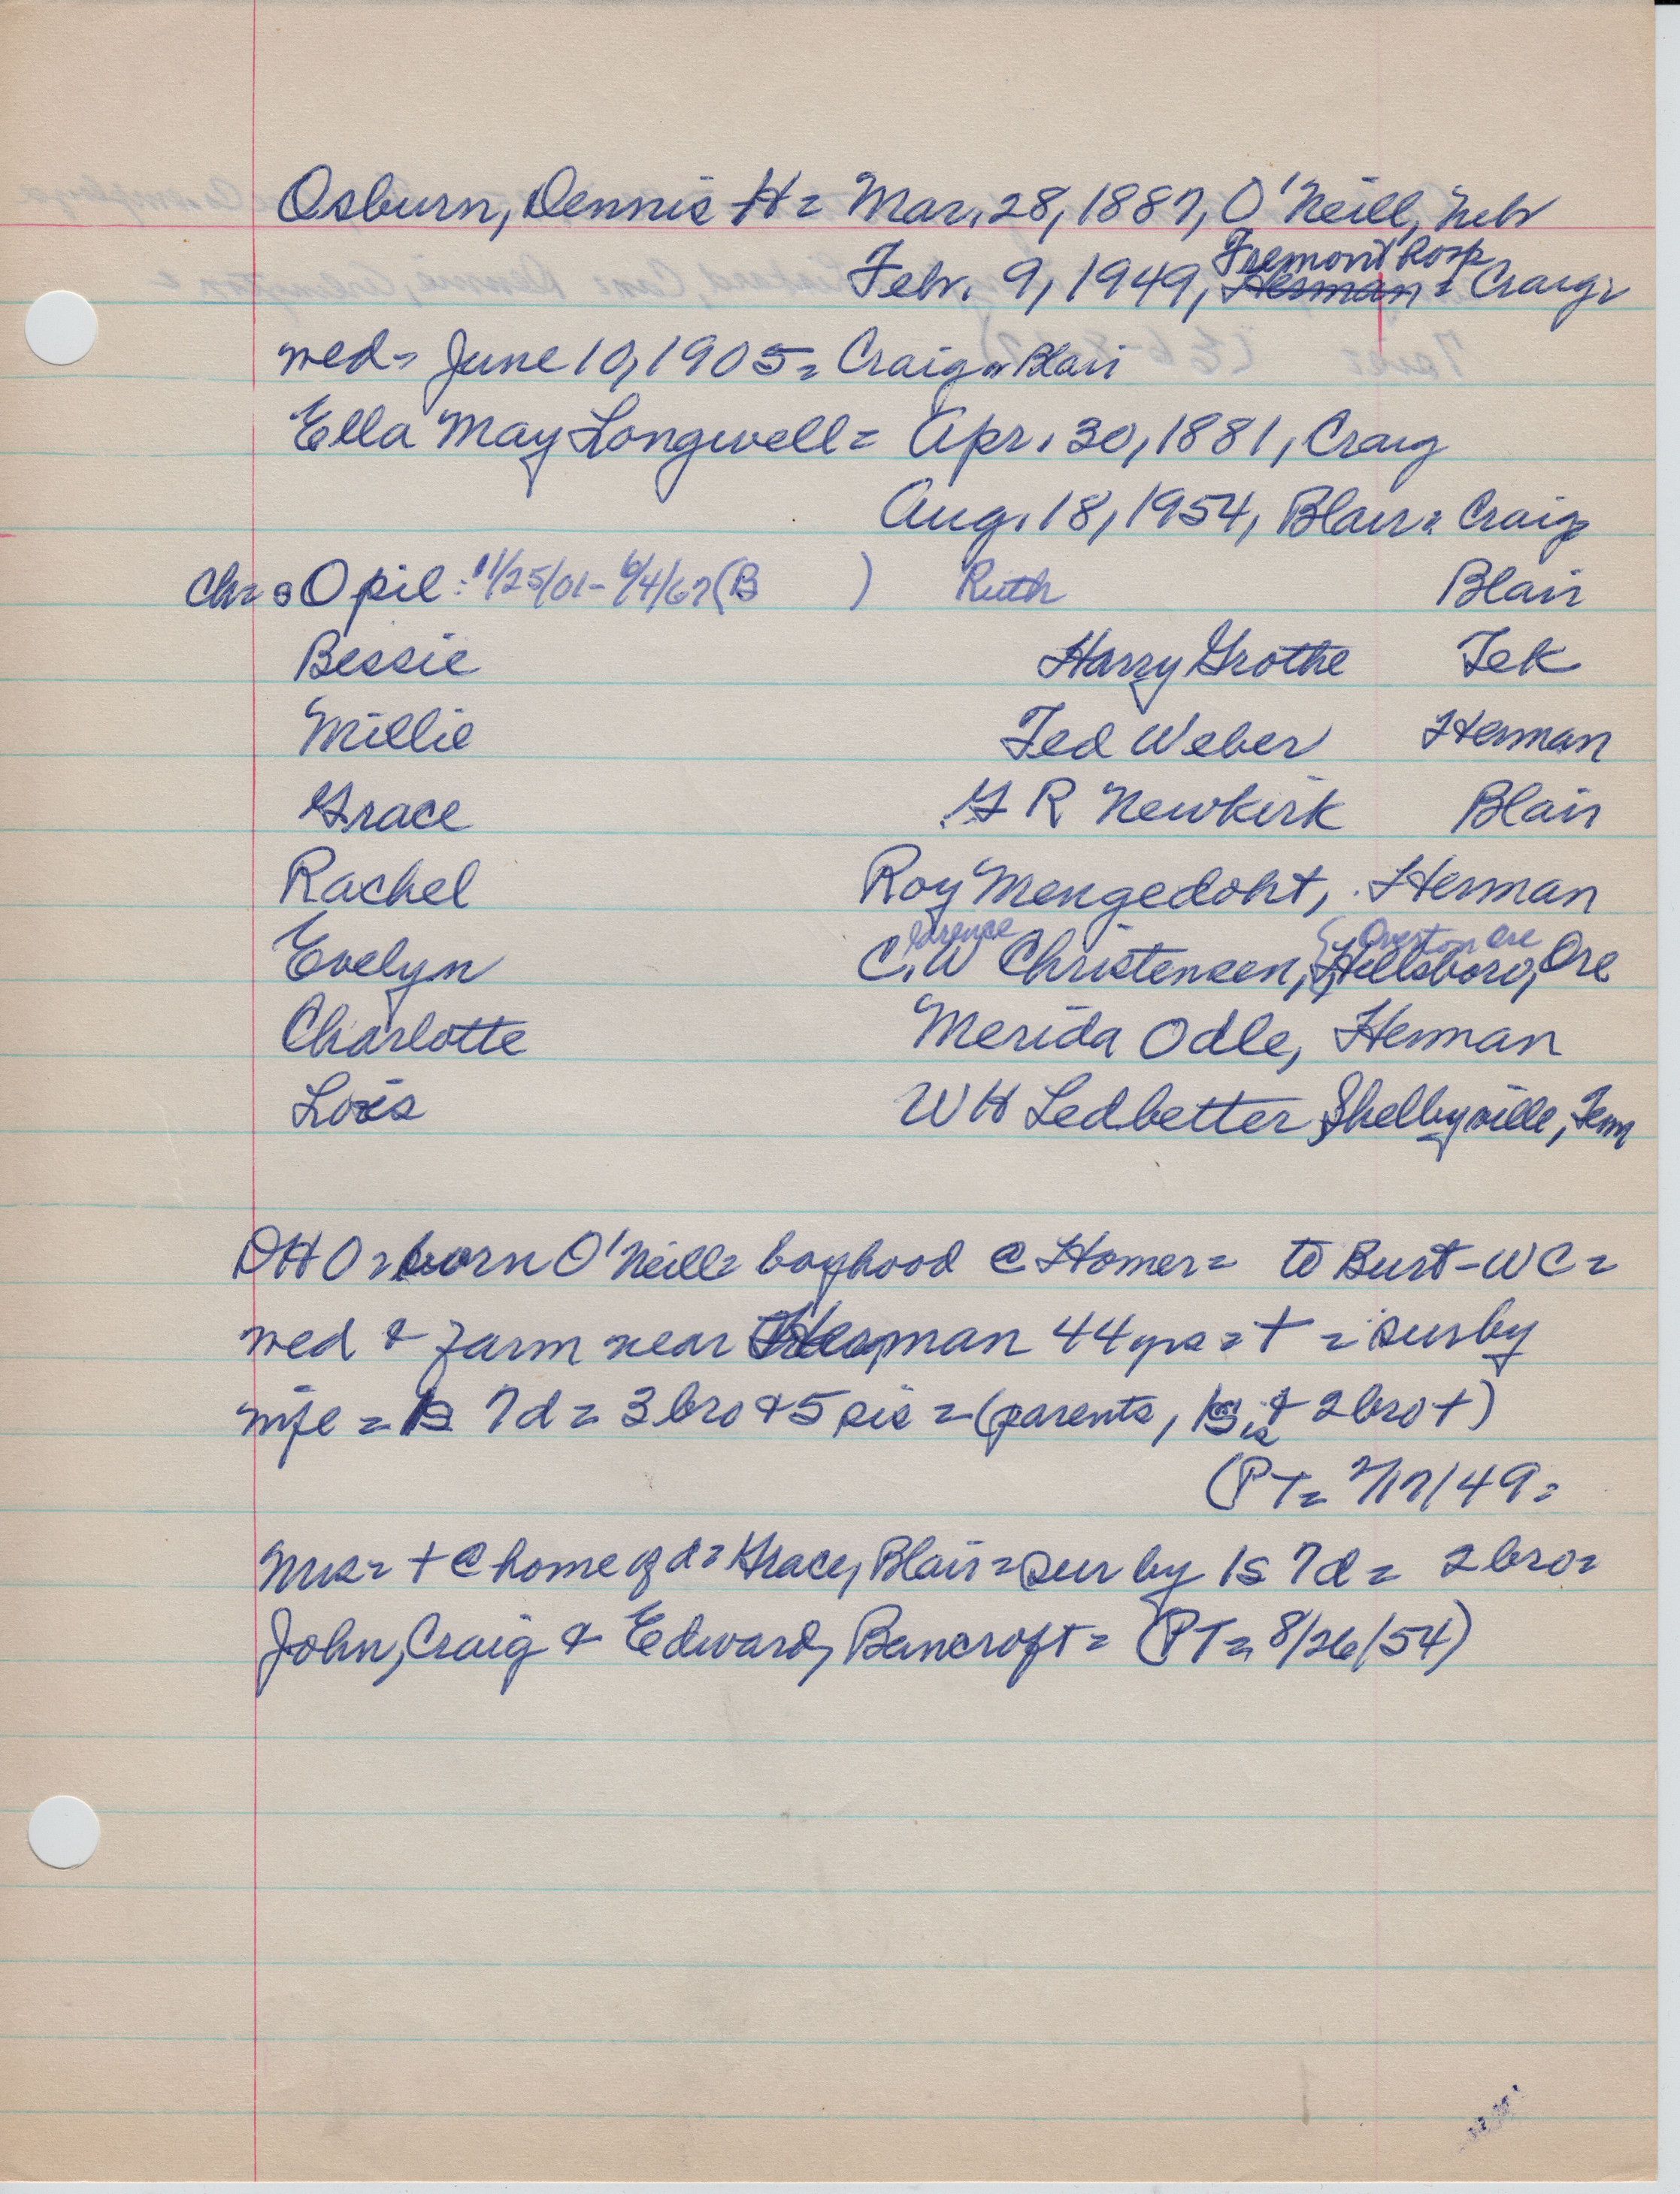 Osburn, Dennis H = Mar. 28, 1887, O'Neill, Nebr
Fremont Hosp
Febr. 9, 1949, Herman = Craig =
wed = June 10, 1905 = Craig or Blair
Ella May Longwell = Apr. 30, 1881, Craig
Aug. 18, 1954, Blair = Craig
Chr = Opil : 11/25/01 - 6/4/67 (B ) Ruth Blair
Bessie Harry Grothe Tek
Millie Ted Weber Herman
Grace G R Newkirk Blair
Rachel Roy Mengedoht, Herman
larence Overton Ore
Evelyn C. W Christensen, Hillsboro, Ore
Charlotte Merida Odle, Herman
Lois W H Ledbetter Shelbyville, Tenn
DHO = born O'Neill = boyhood @ Homer = to Burt - WC =
wed & farm near Herman 44 yrs = + = sur by
wife = 1s 7d = 3 bro & 5 sis = (parents, 1 sis & 2 bro +)
(PT = 2/17/49 =
Mrs = + @ home of d = Grace, Blair = sur by 1s 7d = 2 bro =
John, Craig & Edward, Bancroft = (PT = 8/26/54)